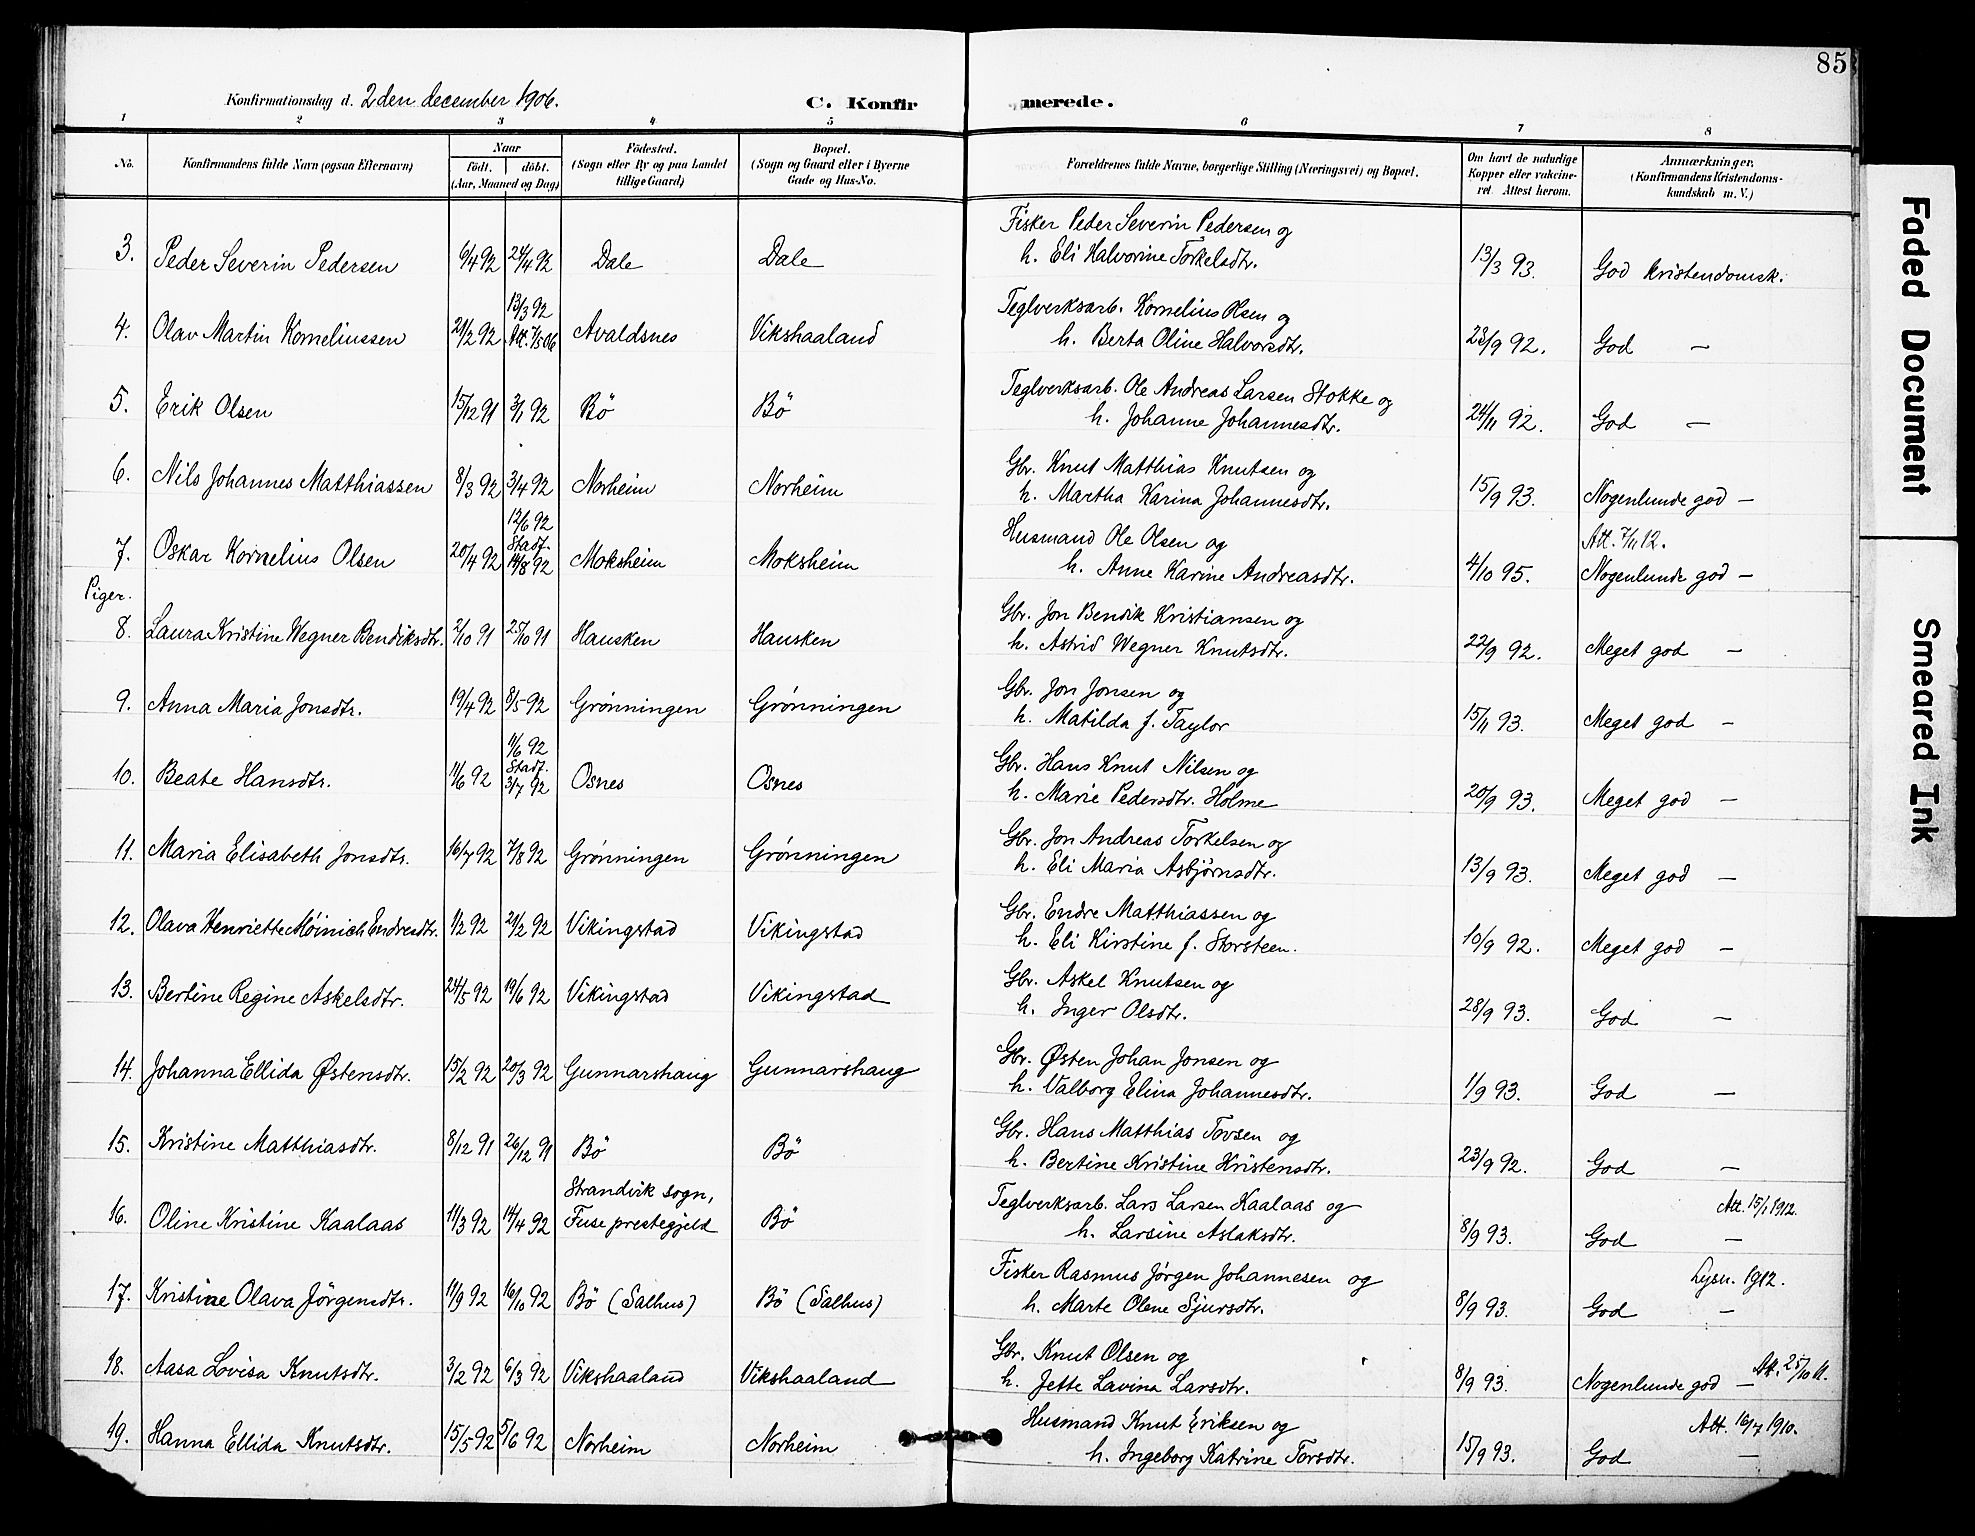 85
Konfirmationsdag d. 2den december 1906.
C. Konfirmerede.
1 2 3 4 5 6 7 8
No. Konfirmandens fulde Navn (ogsaa Efternavn) Naar født. døbt. (Aar, Maaned og Dag) Fødested. (Sogn eller By og paa Landet tillige Gaard) Bopæl. (Sogn og Gaard eller i Byerne Gade og Hus-No. Forældrenes fulde Navne, borgerlige Stilling (Næringsvei) og Bopæl. Om havt de naturlige Kopper eller vakcineret. Attest herom. Anmærkninger. (Konfirmandens Kristendomskundskab m. V.)
3. Peder Severin Pedersen 6/4 92 24/4 92 Dale Dale Fisker Peder Severin Pedersen og
h. Eli Halvorine Torkelsdtr. 13/3 93. God kristendomsk.
4. Olav Martin Korneliussen 21/2 92 13/3 92 Att. 7/5 06 Avaldsnes Vikshaaland Teglverksarb. Kornelius Olsen og
h. Berta Oline Halvorsdtr. 23/9 92. God —
5. Erik Olsen 15/12 91 3/1 92 Bö Bö Teglverksarb. Ole Andreas Larsen Stokke og
h. Johanne Johannesdtr. 24/11 92. God —
6. Nils Johannes Matthiassen 8/3 92 3/4 92 Norheim Norheim Gbr. Knut Matthias Knutsen og
h. Martha Karina Johannesdtr. 15/9 93. Nogenlunde god —
7. Oskar Kornelius Olsen 20/4 92 12/6 92 Stadf. 14/8 92 Moksheim Moksheim Husmand Ole Olsen og
h. Anne Karine Andreasdtr. 4/10 95. Att. 7/11 12. Nogenlunde god —
Piger.
8. Laura Kristine Wegner Bendiksdtr. 2/10 91 25/10 91 Hausken Hausken Gbr. Jon Bendik Kristiansen og
h. Astrid Wegner Knutsdtr. 22/9 92. Meget god —
9. Anna Maria Jonsdtr. 19/4 92 8/5 92 Grønningen Grønningen Gbr. Jon Jonsen og
h. Matilda f. Taylor 15/11 93. Meget god —
10. Beate Hansdtr. 11/6 92 11/6 92 Stadf. 3/7 92 Osnes Osnes Gbr. Hans Knut Nilsen og
h. Marie Pedersdtr. Holme 20/9 93. Meget god —
11. Maria Elisabeth Jonsdtr. 16/7 92 7/8 92 Grønningen Grønningen Gbr. Jon Andreas Torkelsen og
h. Eli Maria Asbjørnsdtr. 13/9 93. Meget god —
12. Olava Henriette Møinich Endresdtr. 1/2 92 21/2 92 Vikingstad Vikingstad Gbr. Endre Matthiassen og
h. Eli Kirstine f. Storsteen. 10/9 92. Meget god —
13. Bertine Regine Askelsdtr. 24/5 92 19/6 92 Vikingstad Vikingstad Gbr. Askel Knutsen og
h. Inger Olsdtr. 28/9 93. God —
14. Johanna Ellida Østensdtr. 15/2 92 20/3 92 Gunnarshaug Gunnarshaug Gbr. Østen Johan Jonsen og
h. Valborg Elina Johannesdtr. 1/9 93. God —
15. Kristine Matthiasdtr. 8/12 91 26/12 91 Bö Bö Gbr. Hans Matthias Tovsen og
h. Bertine Kristine Kristensdtr. 23/9 92. God —
16. Oline Kristine Kaalaas 11/3 92 14/4 92 Strandvik sogn, Fuse prestegjeld Bö Teglverksarb. Lars Larsen Kaalaas og
h. Larsine Aslaksdtr. 8/9 93. Att. 15/1 1912. God —
17. Kristine Olava Jörgensdtr. 11/9 92 16/10 92 Bö (Salhus) Bö (Salhus) Fisker Rasmus Jørgen Johannesen og
h. Marte Olene Sjursdtr. 8/9 93. Lysn. 1912. God —
18. Aasa Lovisa Knutsdtr. 3/2 92 6/3 92 Vikshaaland Vikshaaland Gbr. Knut Olsen og
h. Jette Lavina Larsdtr. 8/9 93. Nogenlunde god — Att. 25/10 11.
19. Hanna Ellida Knutsdtr. 15/5 92 5/6 92 Norheim Norheim Husmand Knut Eriksen og
h. Ingeborg Katrine Torsdtr. 15/9 93. Att. 16/7 1910. God —
Faded Document
Smeared Ink